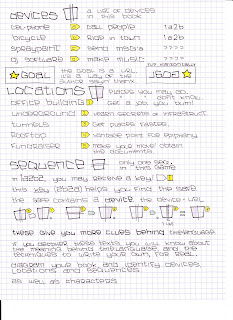 devices a list of devices in this book
cell-phone call people 1a2b
bicycle ride in town 1a2b
spraypaint send msg's ????
dj software make music ????
GOAL the goal is a url GOAL
Locations places you may go,
office building get a job, you bum!
underground learn secrets of infrastruct.
tunnels get places faster
rooftop vantage point for epiphany
fundraiser make your move! obtain
the documents.
sequence only one seq.
in this game
in 1a2b2, you may receive a key!
this key helps you find the safe
the safe contains a device the device = url
these give you more clues behind
if you decipher these texts, you will know about
the meaning behind the language and the
techniques to write your own, for real.
diagram your book and identify devices,
locations and sequences.
as well as characters